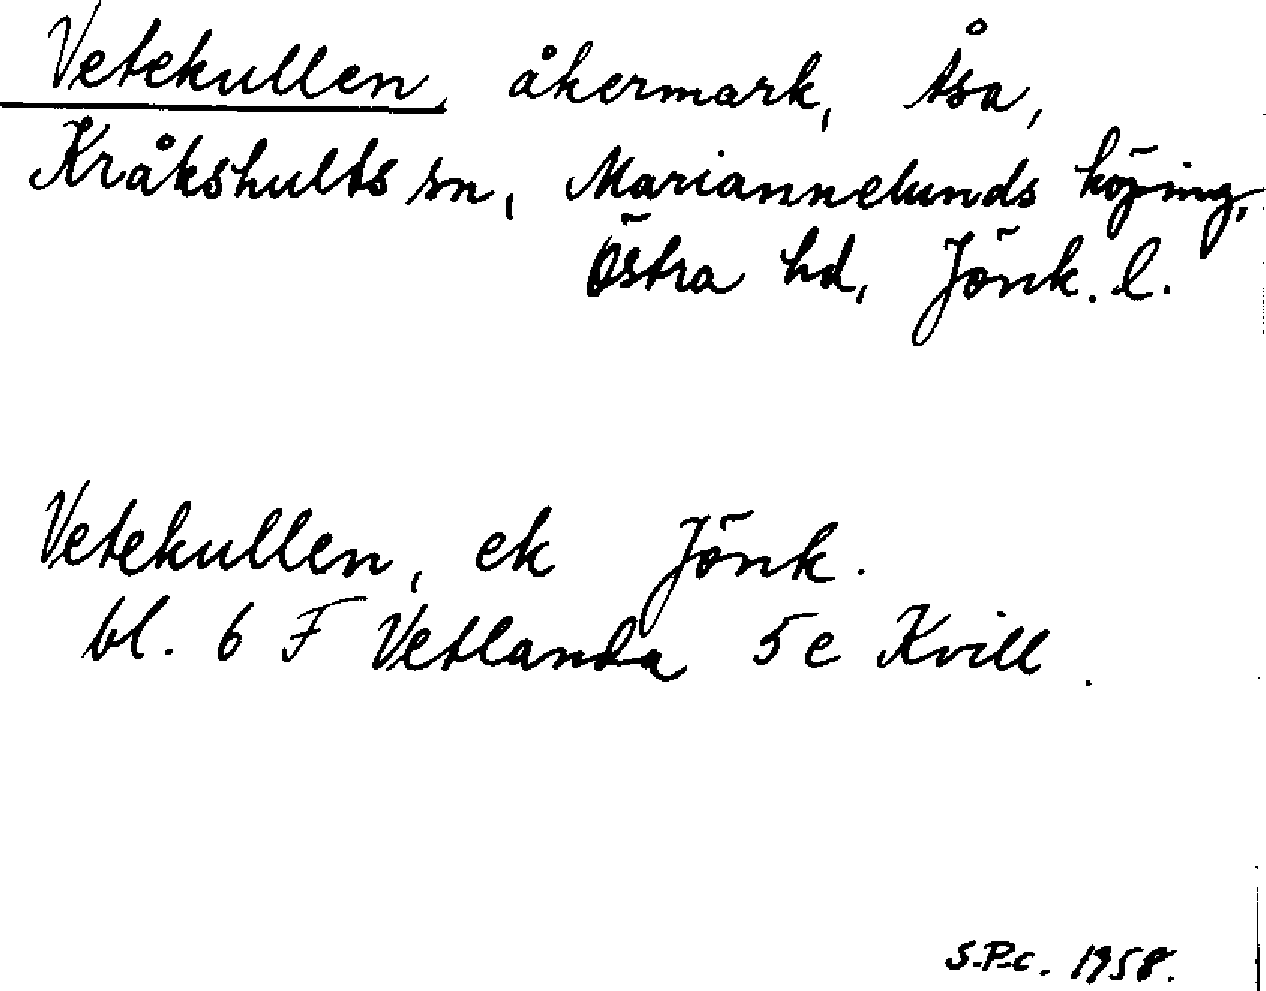 Vetekullen, åkermark, Åsa,
Kråkshults sn, Mariannelunds köping,
Östra hd, Jönk. l.
Vetekullen, ek Jönk.
bl. 6 F Vetlanda 5e Kvill.
S.P-c. 1958.